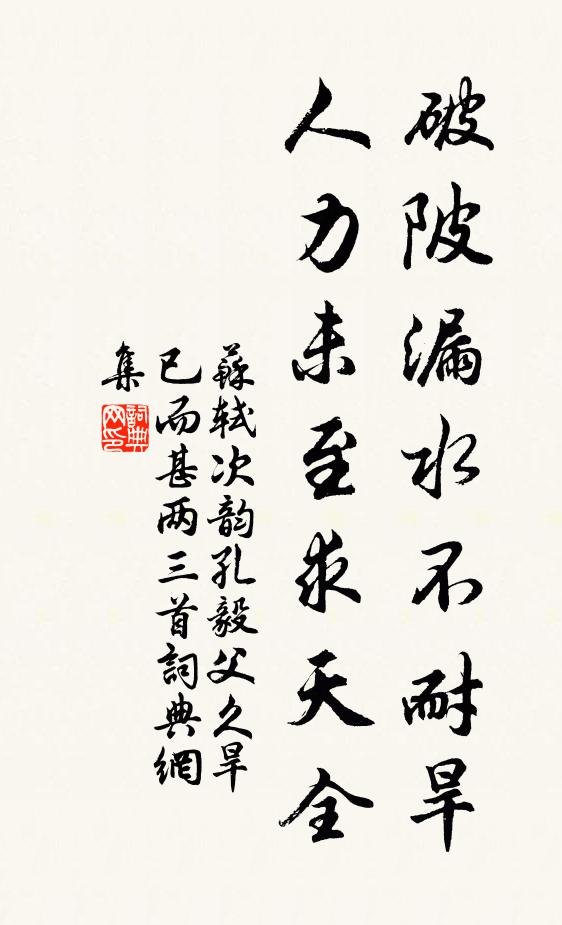 破陂漏水不耐旱
人力未至求天全
蘇軾次韵孔毅父久旱
已而甚两三首詞典網
集
詞典
网印